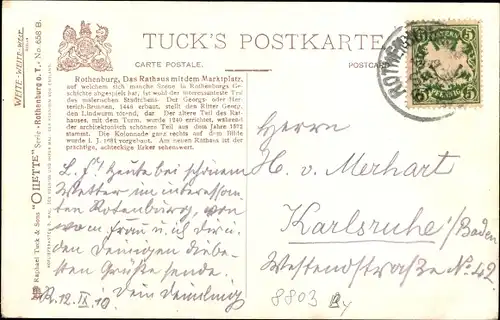 TUCK'S POSTKARTE
CARTE POSTALE.
POSTCARD
WEITE-WEITE-WELT.
Raphael Tuck & Sons "OILETTE" Serie - Rothenburg o. T. - No. 658 B.
Rothenburg, Das Rathaus mit dem Marktplatz,
auf welchem sich manche Szene in Rothenburgs Ge-
schichte abgespielt hat, ist wohl der interessanteste Teil
des malerischen Städtchens. Der Georgs- oder Her-
terich-Brunnen, 1446 erbaut, stellt den Ritter Georg,
den Lindwurm tötend, dar. Der ältere Teil des Rat-
hauses, mit dem Turm, wurde 1240 errichtet, während
der architektonisch schönere Teil aus dem Jahre 1572
stammt. Die Kolonnade ganz rechts auf dem Bilde
wurde i. J. 1681 vorgebaut. Am neuen Rathaus ist der
prächtige, achteckige Erker sehenswert.
5 5
PFENNIG
ROTHENBURG
Herrn
H. v. Merhart
Karlsruhe i/Baden
Westendstraße No. 42
L. F! Heute bei schönem
Wetter im interessan-
ten Rotenburg, von
wo m. Frau u. ich dir u.
den Deinigen die be-
sten Grüße sende.
R. 12. IX 10 Dein Deimling
8803 By